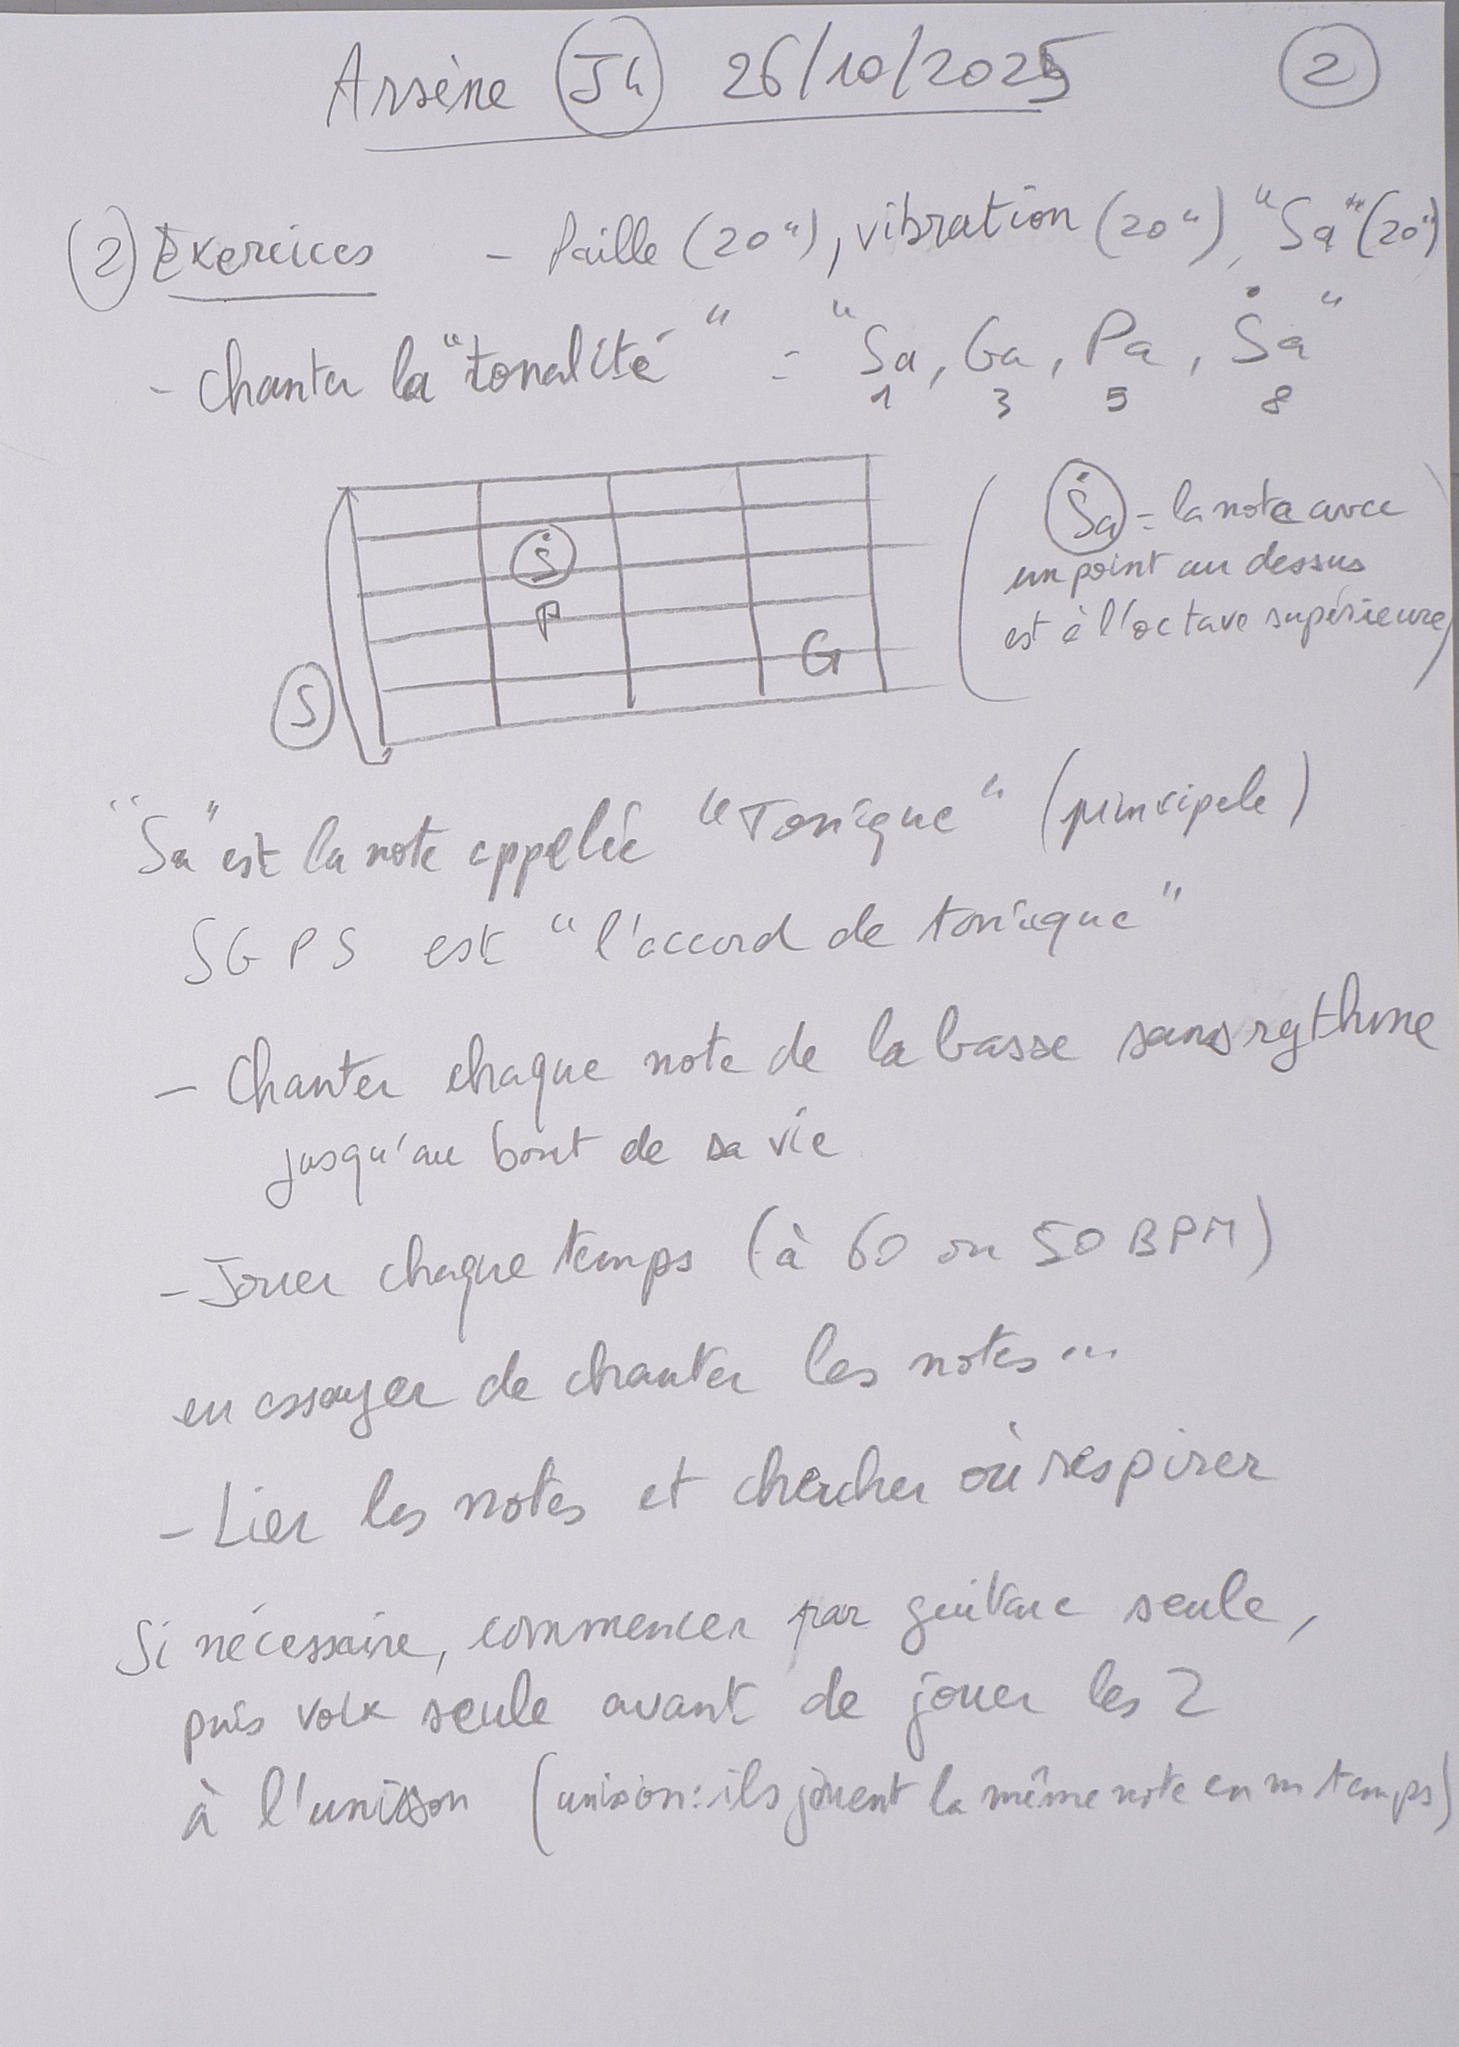 Arsène J4 26/10/2025 2
2) Exercices - Paille (20"), vibration (20"), "Sa" (20")
- Chanter la "tonalité" = "Sa, Ga, Pa, Ṡa"
1 3 5 8
Ṡ
P
G
S
(Ṡa = la note avec
un point au dessus
est à l'octave supérieure)
"Sa" est la note appelée "Tonique" (principale)
SGPS est "l'accord de tonique"
- Chanter chaque note de la basse sans rythme
jusqu'au bout de sa vie
- Jouer chaque temps (à 60 ou 50 BPM)
en essayer de chanter les notes...
- Lier les notes et chercher où respirer
Si nécessaire, commencer par guitare seule,
puis voix seule avant de jouer les 2
à l'unisson (unison: ils jouent la même note en m temps)